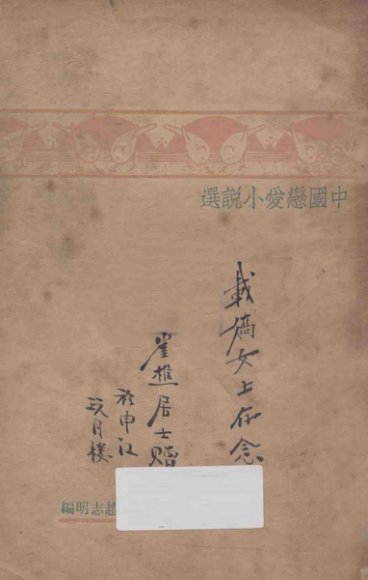 選説小愛戀國中
載
女士存念
居士贈
於申江
玩月樓
編明志趙